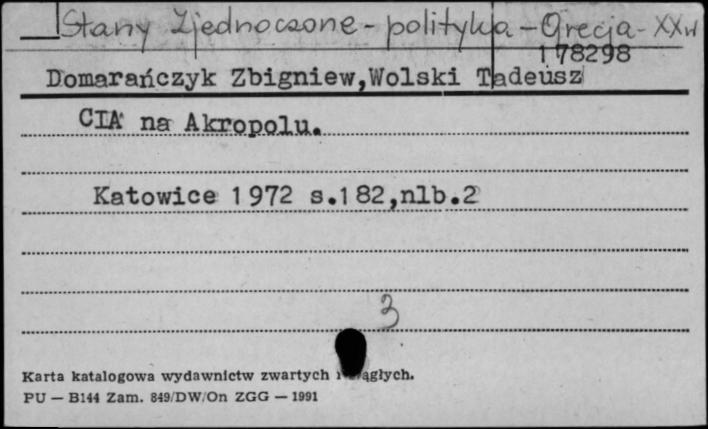 Stany Zjednoczone - polityka - Grecja - XXw
178298
Domarańczyk Zbigniew,Wolski Tadeusz
CIA na Akropolu.
Katowice 1972 s.182,nlb.2
3
Karta katalogowa wydawnictw zwartych i ciągłych.
PU — B144 Zam. 849/DW/On ZGG — 1991